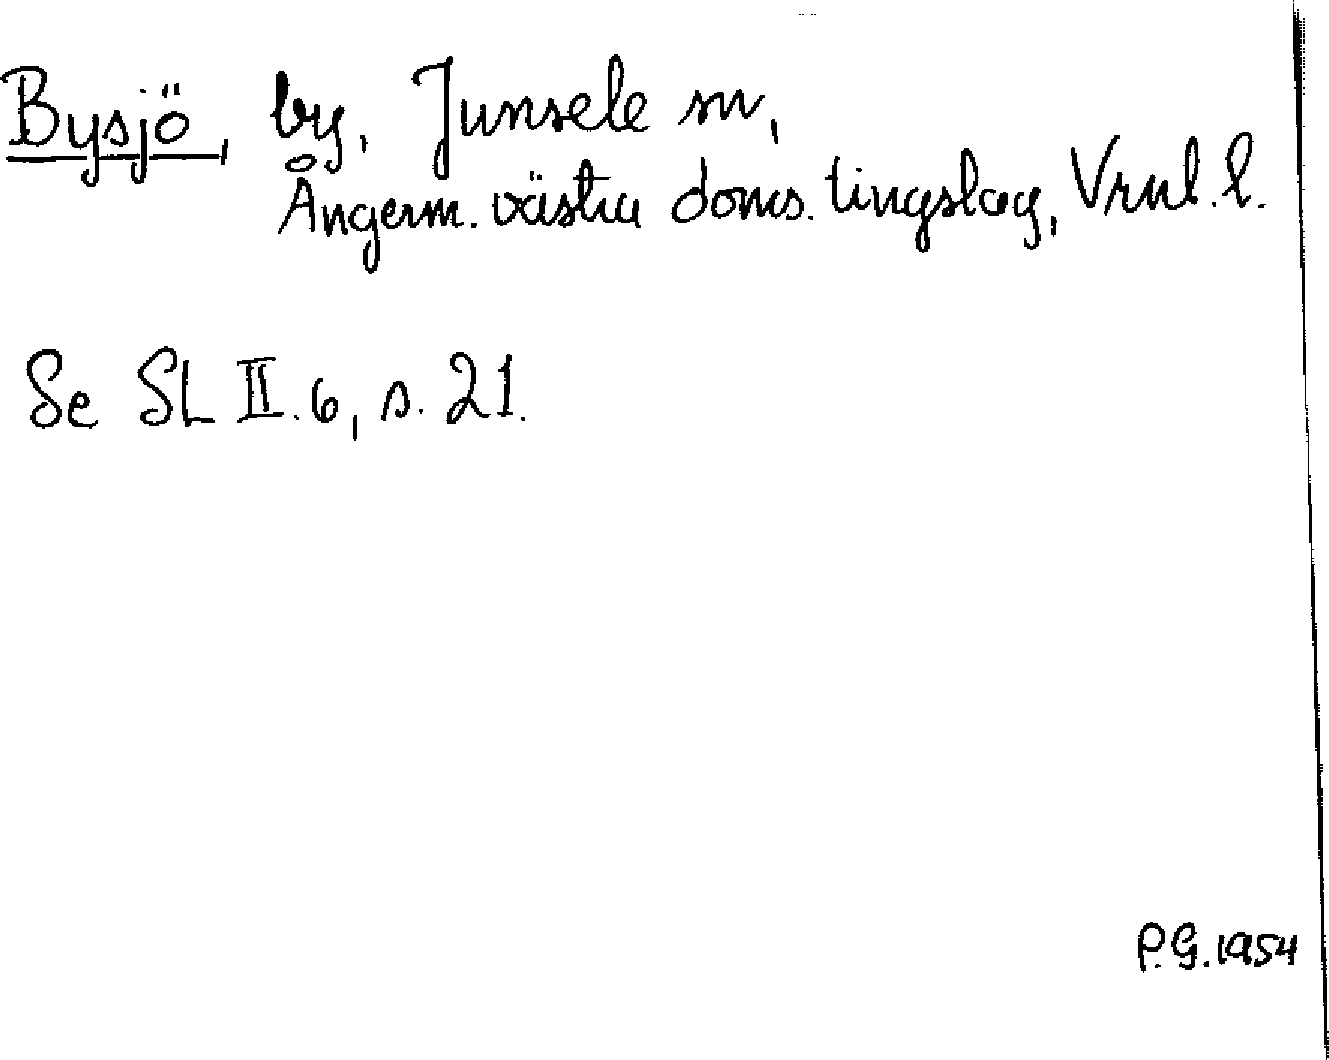 Bysjö, by, Junsele sn,
Ångerm. västra doms. tingslag, Vrnl. l.
Se SL II. 6, s. 21.
P.G. 1954